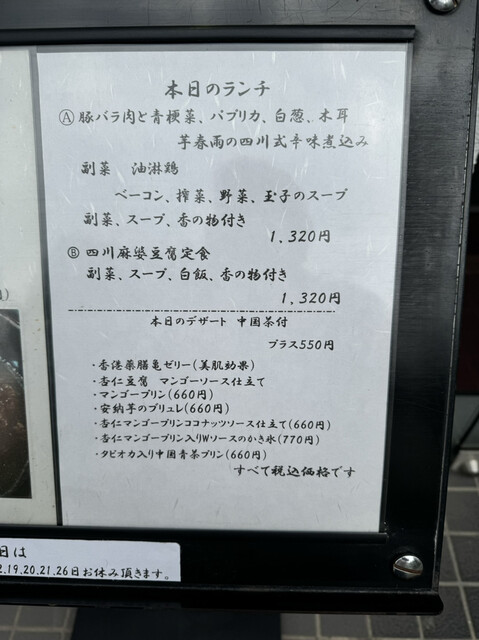 本日のランチ
Ⓐ豚バラ肉と青梗菜、パプリカ、白葱、木耳
芋春雨の四川式辛味煮込み
副菜 油淋鶏
ベーコン、搾菜、野菜、玉子のスープ
副菜、スープ、香の物付き
1,320円
Ⓑ四川麻婆豆腐定食
副菜、スープ、白飯、香の物付き
1,320円
本日のデザート 中国茶付
プラス550円
・香港薬膳亀ゼリー(美肌効果)
・杏仁豆腐 マンゴーソース仕立て
・マンゴープリン(660円)
・安納芋のブリュレ(660円)
・杏仁マンゴープリンココナッツソース仕立て(660円)
・杏仁マンゴープリン入りWソースのかき氷(770円)
・タピオカ入り中国青茶プリン(660円)
すべて税込価格です
日は
2.19.20.21.26日お休み頂きます。